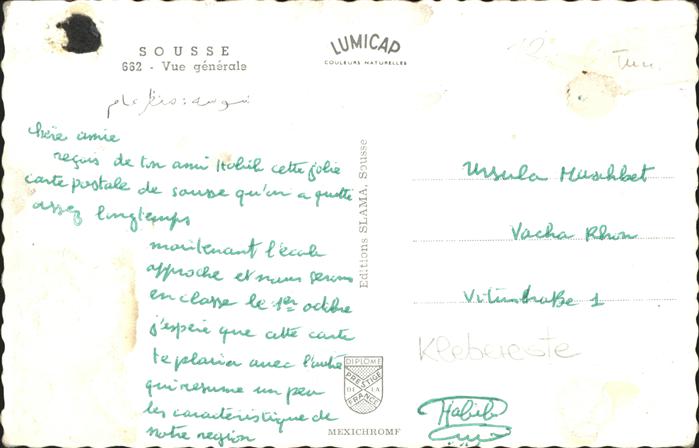 SOUSSE
662 - Vue générale
سوسة: منظر عام
LUMICAP
COULEURS NATURELLES
12
Tun.
chère amie
reçuis de ton ami Habib cette jolie
carte postale de sousse qu'on a quitté
assez longtemps
maintenant l'école
approche et nous serons
en classe le 1er octobre
j'espère que cette carte
te plaira avec l'autre
qui resume un peu
les caractéristique de
notre region
Editions SLAMA, Sousse
DIPLOME
PRESTIGE
DE LA
FRANCE
MEXICHROME
Ursula Muschbet
Vacha Rhön
Vitusstraße 1
Klebereste
Habib